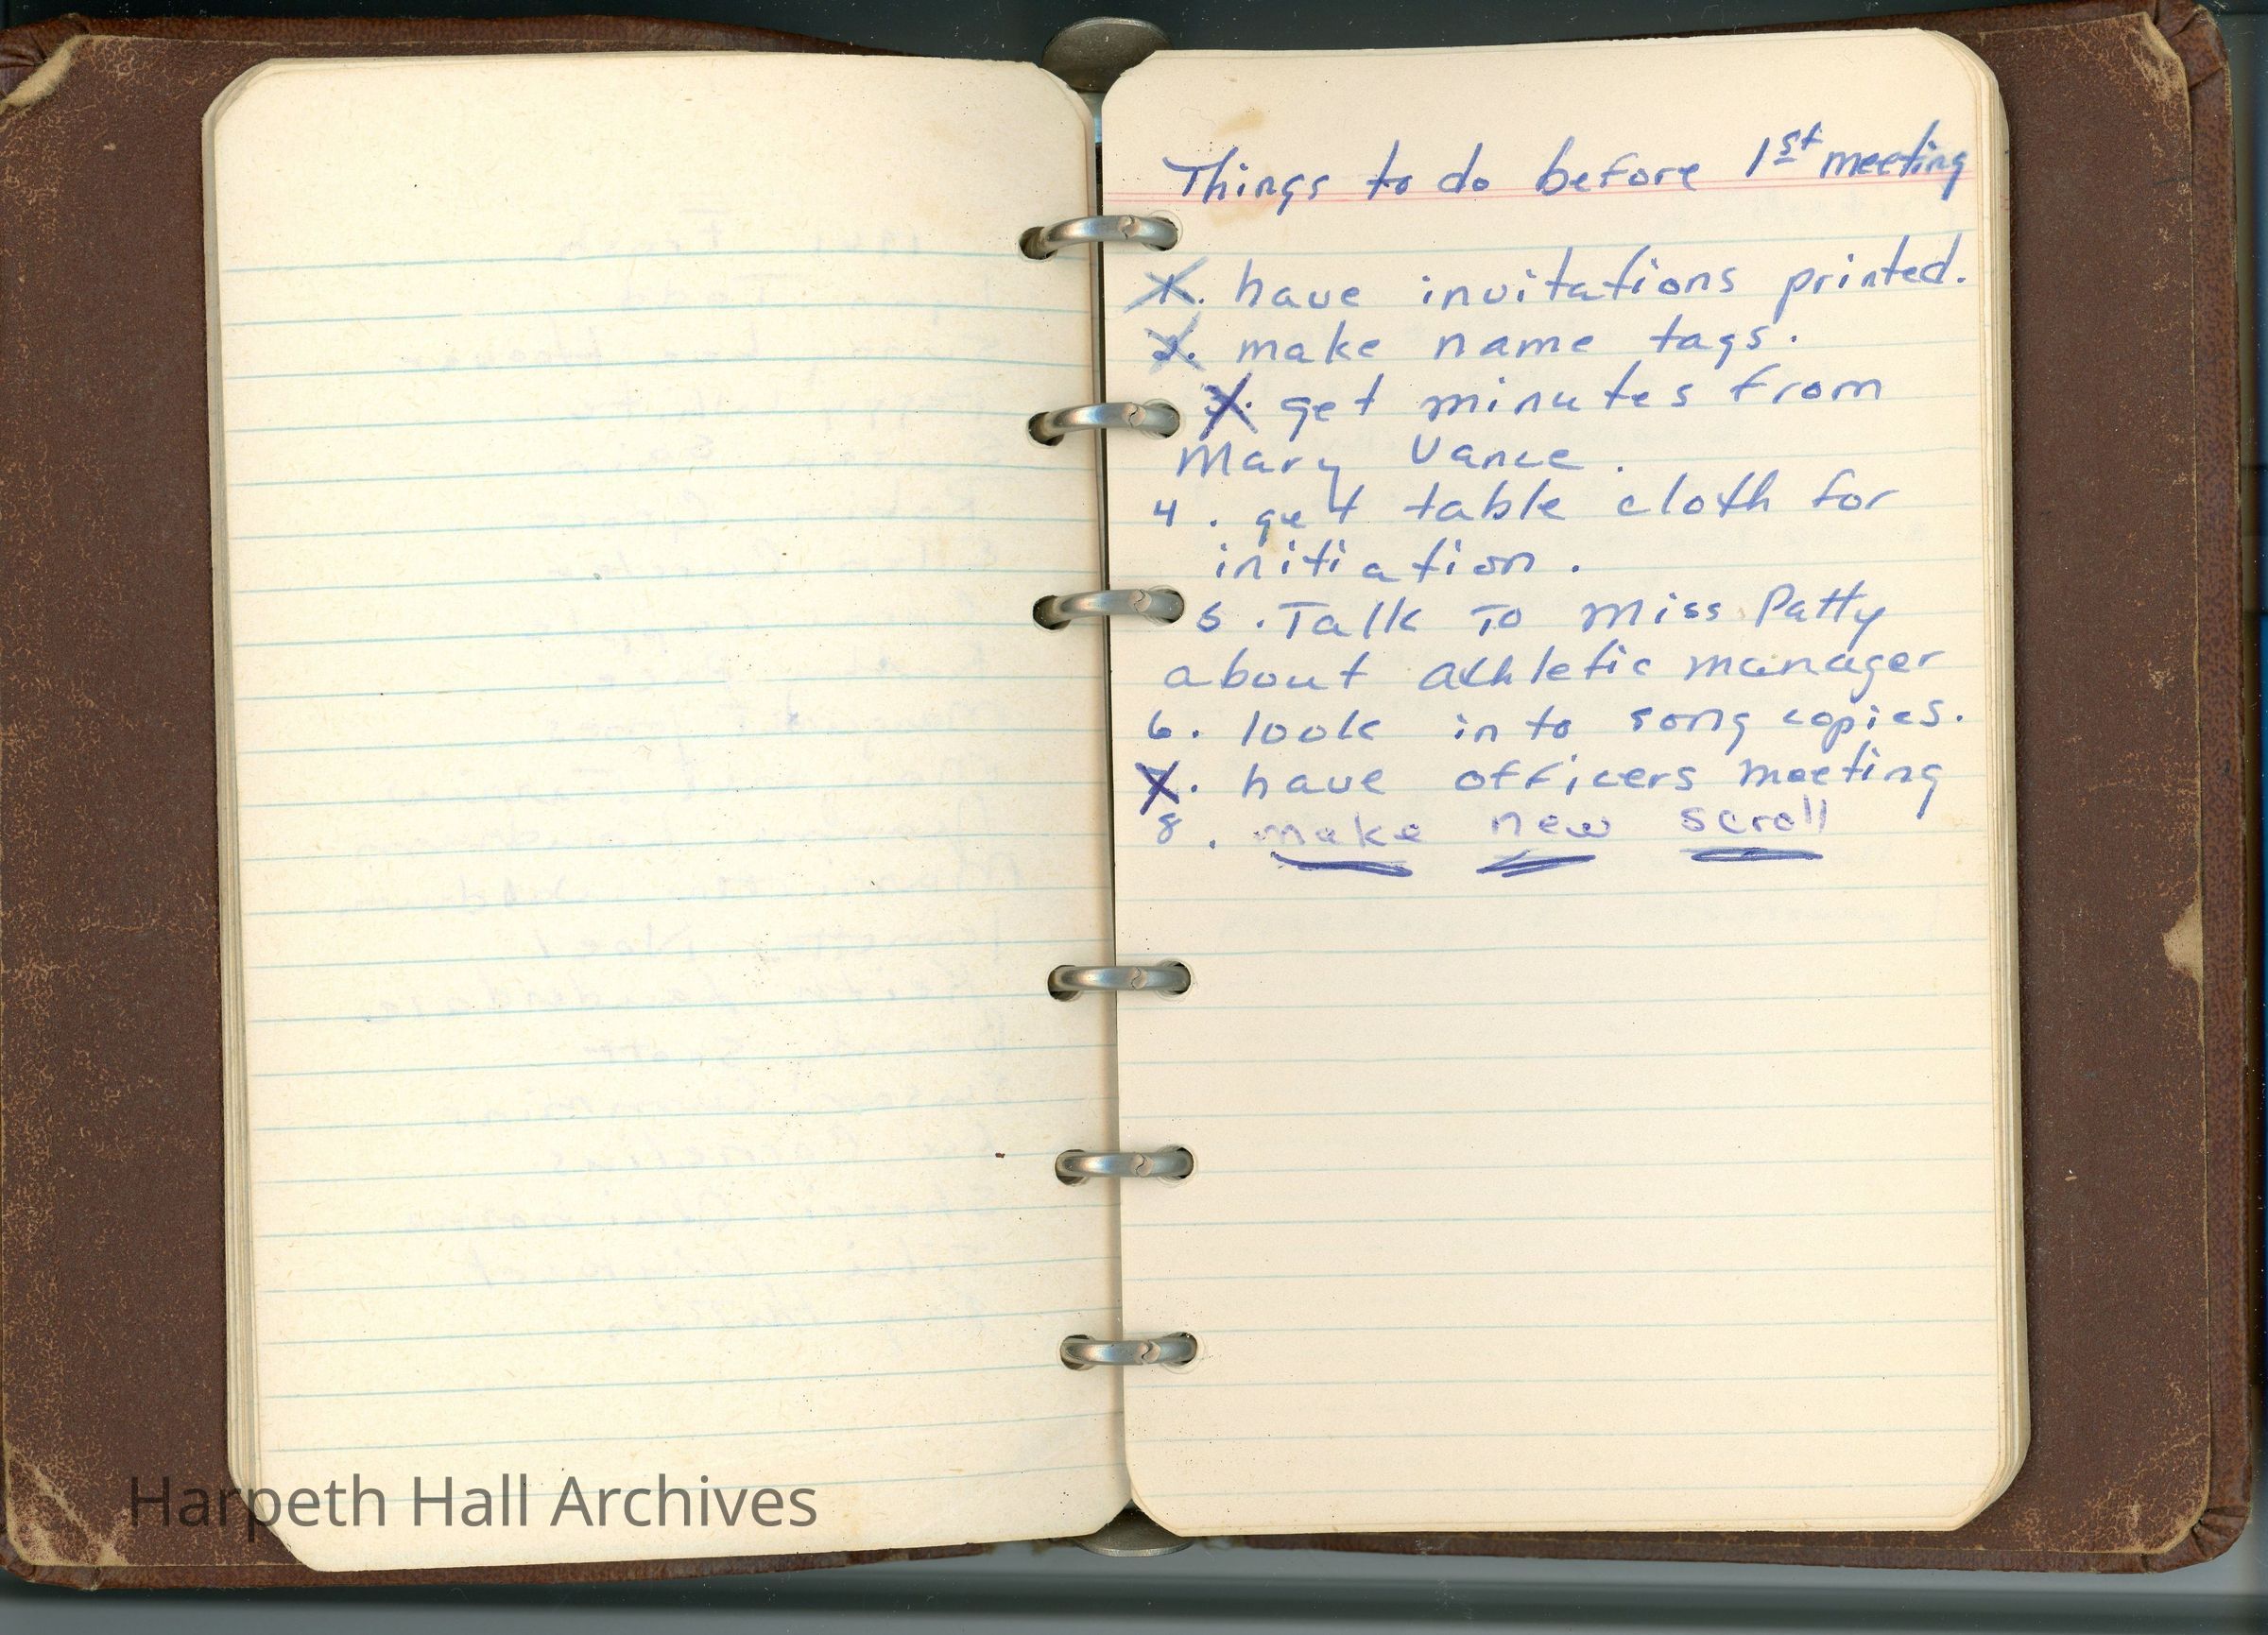 Things to do before 1st meeting
1. have invitations printed.
2. make name tags.
3. get minutes from
Mary Vance.
4. get table cloth for
initiation.
5. Talk To Miss Patty
about athletic manager
6. look into song copies.
7. have officers meeting
8. make new scroll
Harpeth Hall Archives